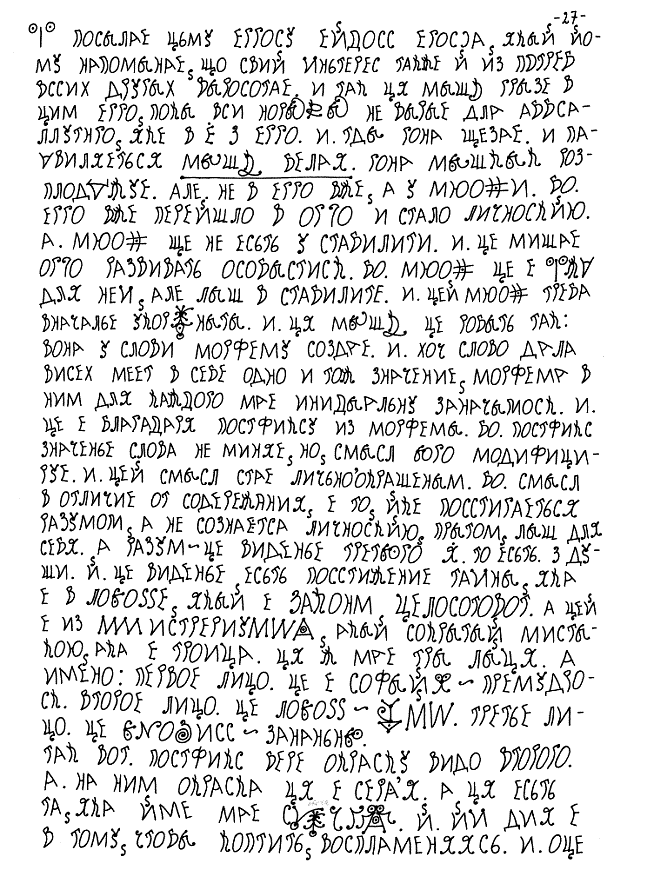 -27-
ПОСЫЛАЕ ЦЬМУ ЕРГОСУ ЕЙДОСС ЕГОСЗА, ЯКЫЙ ЙО-
МУ НАПОМЫНАЕ, ЩО СВИЙ ИНЬТЕРЕС ТАКЖЕ Й ИЗ ПОТРЕБ
ВССИХ ДРУГЫХ ВЫРОСОТАЕ. И ТАК ЦЯ МЫЩЬ ГРЫЗЕ В
ЦИМ ЕРГО, ПОКЫ ВСИ НЕ ВЫРЫЕ ДЛА АББСА-
ЛЛУТНГО, ЯКЕ В Е З ЕРГО. И. ТДЫ ГОНА ЩЕЗАЕ. И ПА-
МЫЩЬ БЕЛАЯ. ГОНА МЫШКЫК РОЗ-
АЛЕ, НЕ В ЕГГО ВЖЕ, А У МЮО#И. БО.
ЕГГО ВЖЕ ПЕРЕЙШЛО В ОГГО И СТАЛО ЛИЧНОСКИЮ.
А. МЮО# ЩЕ НЕ ЕСЬТЬ У СТАБИЛИТИ. И. ЦЕ МИШАЕ
ОГГО РАЗВИВАТЬ ОСОБЫСТИСК. БО. МЮО# ЦЕ Е
ДЛЯ НЕИ, АЛЕ ЛЫШ В СТАБИЛИТЕ. И. ЦЕЙ МЮО# ТРЕБА
ВНАЧАЛЬЕ И. ЦЯ МЫЩЬ ЦЕ РОБЫТЬ ТАК:
ВОНА У СЛОВИ МОРФЕМУ СОЗДАЕ. И. ХОЧ СЛОВО ДЛЛА
ВИСЕХ МЕЕТ В СЕБЕ ОДНО И ТОЖ ЗНАЧЕНИЕ, МОРФЕМА В
НИМ ДЛЯ КАЖДОГО МАЕ ИНИДЫАЛЬНУ ЗАНАЧЫМОСК. И.
ЦЕ Е БЛАГАДАРЯ ПОСТФИКСУ ИЗ МОРФЕМЫ. БО. ПОСТФИКС
ЗНАЧЕНЬЕ СЛОВА НЕ МИНЯЕ, НО, СМЫСЛ ЕОГО МОДИФИЦИ-
РУЕ. И. ЦЕЙ СМЫСЛ СТАЕ ЛИЧЬНО'ОКРАШЕНЫМ. БО. СМЫСЛ
В ОТЛИЧИЕ ОТ СОДЕРЕЖАНИЯ, Е ТО, ЙКЕ ПОССТИГАЕТЬСЯ
РАЗУМОМ, А НЕ СОЗНАЕТСА ЛИЧНОСКИЮ, ПРЫТОМ, ЛЫШ ДЛЯ
СЕБЯ. А РАЗУМ ~ ЦЕ ВИДЕНЬЕ ТРЕТЬОГО Я. ТО ЕСТЬ. З ДУ-
ШИ. Й. ЦЕ ВИДЕНЬЕ, ЕСТЬ ПОССТИЖЕНИЕ ТАИНЫ, ЯКА
Е В ЛОГОSSЕ, ЯКЫЙ Е ЗАКОНМ, ЦЕЛОСОТОВОТ. А ЦЕЙ
Е ИЗ АКЫЙ СОКРЫТЫЙ МИСТЫ-
КОЮ, АКА Е ТРОИЦА. ЦЯ Ж МАЕ ТРЫ ЛЫЦЯ. А
ИМЕНО: ПЕРВОЕ ЛИЦО. ЦЕ Е СОФЫЙЯ ~ ПРЕМУДРО-
СК. ВТОРОЕ ЛИЦО. ЦЕ ЛОГОSS ~ ТРЕТЬЕ ЛИ-
ЦО. ЦЕ
ТАК ВОТ. ПОСТФИКС БЕРЕ ОКРАСКУ ВИДО ВТОРОГО.
А. НА НИМ ОКРАСКА ЦЯ Е СЕРА'Я. А ЦЯ ЕСТЬ
ТА, ЯКА ЙМЕ МАЕ Й. ЙИ ДИЯ Е
В ТОМУ, ЧТОБЫ КОПТИТЬ, ВОСПЛАМЕНЯЯСЬ. И. ОЦЕ